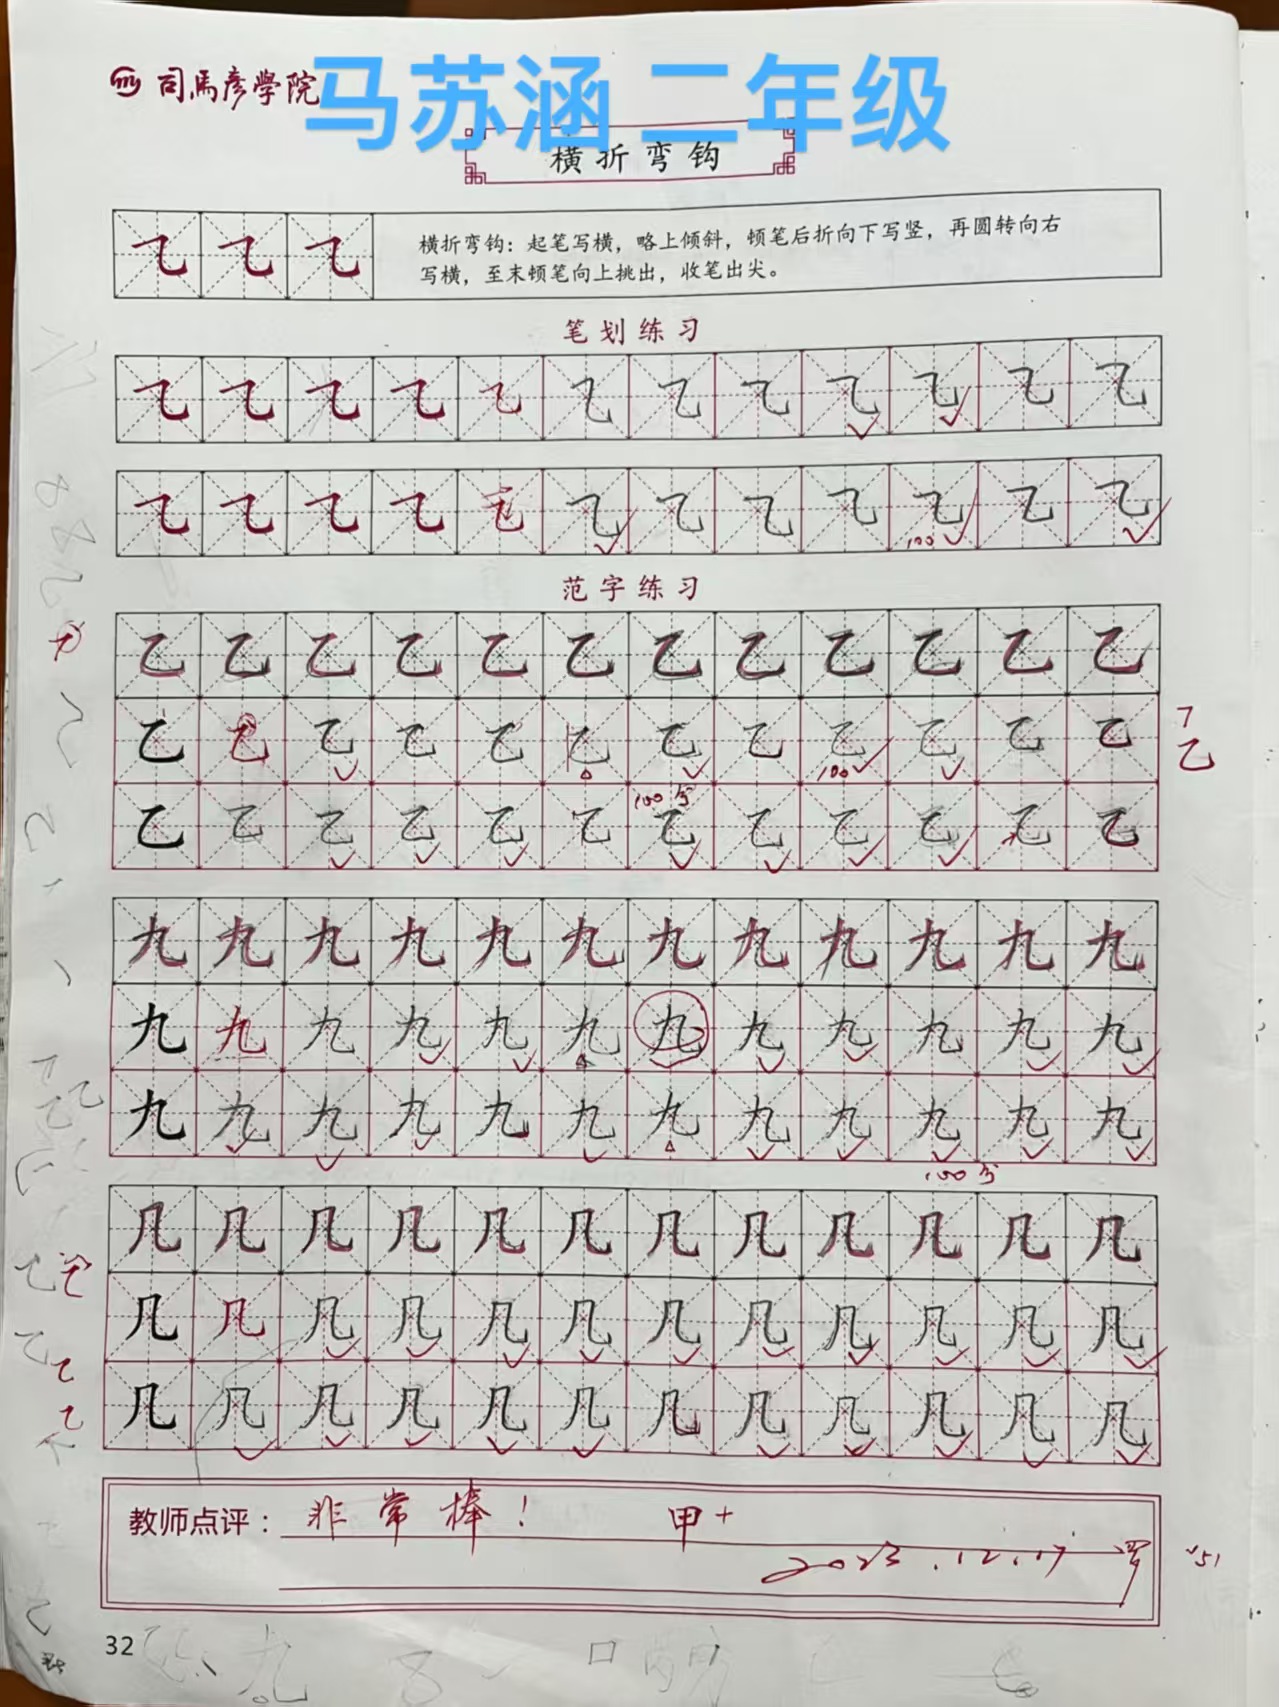 司馬彦學院
马苏涵 二年级
横折弯钩
横折弯钩：起笔写横，略上倾斜，顿笔后折向下写竖，再圆转向右
写横，至末顿笔向上挑出，收笔出尖。
笔划练习
100
范字练习
乙 乙 乙 乙 乙 乙 乙 乙 乙 乙 乙 乙
乙 乙 乙 乙 乙 乙 乙 乙 乙 乙 乙 乙
100
100分
乙 乙 乙 乙 乙 乙 乙 乙 乙 乙 乙 乙
九 九 九 九 九 九 九 九 九 九 九 九
九 九 九 九 九 九 九 九 九 九 九 九
九 九 九 九 九 九 九 九 九 九 九 九
100分
几 几 几 几 几 几 几 几 几 几 几 几
几 几 几 几 几 几 几 几 几 几 几 几
几 几 几 几 几 几 几 几 几 几 几 几
教师点评： 非常棒！ 甲+
2023.12.17 罗
32